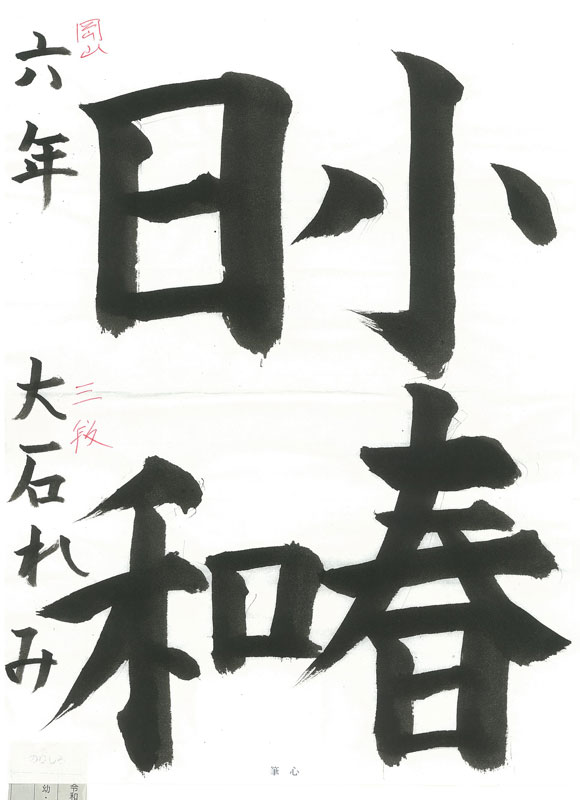 小春
日和
六年 大石れみ
岡山
三段
筆心
のりしろ
令和
幼・